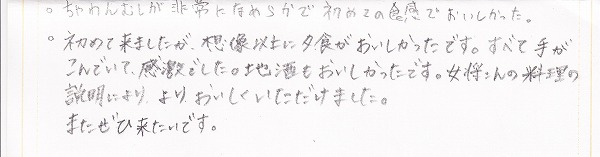 。ちゃわんむしが非常になめらかで初めての食感でおいしかった。
。初めて来ましたが、想像以上に夕食がおいしかったです。すべて手が
こんでいて、感激でした。地酒もおいしかったです。女将さんの料理の
説明により、よりおいしくいただけました。
またぜひ来たいです。